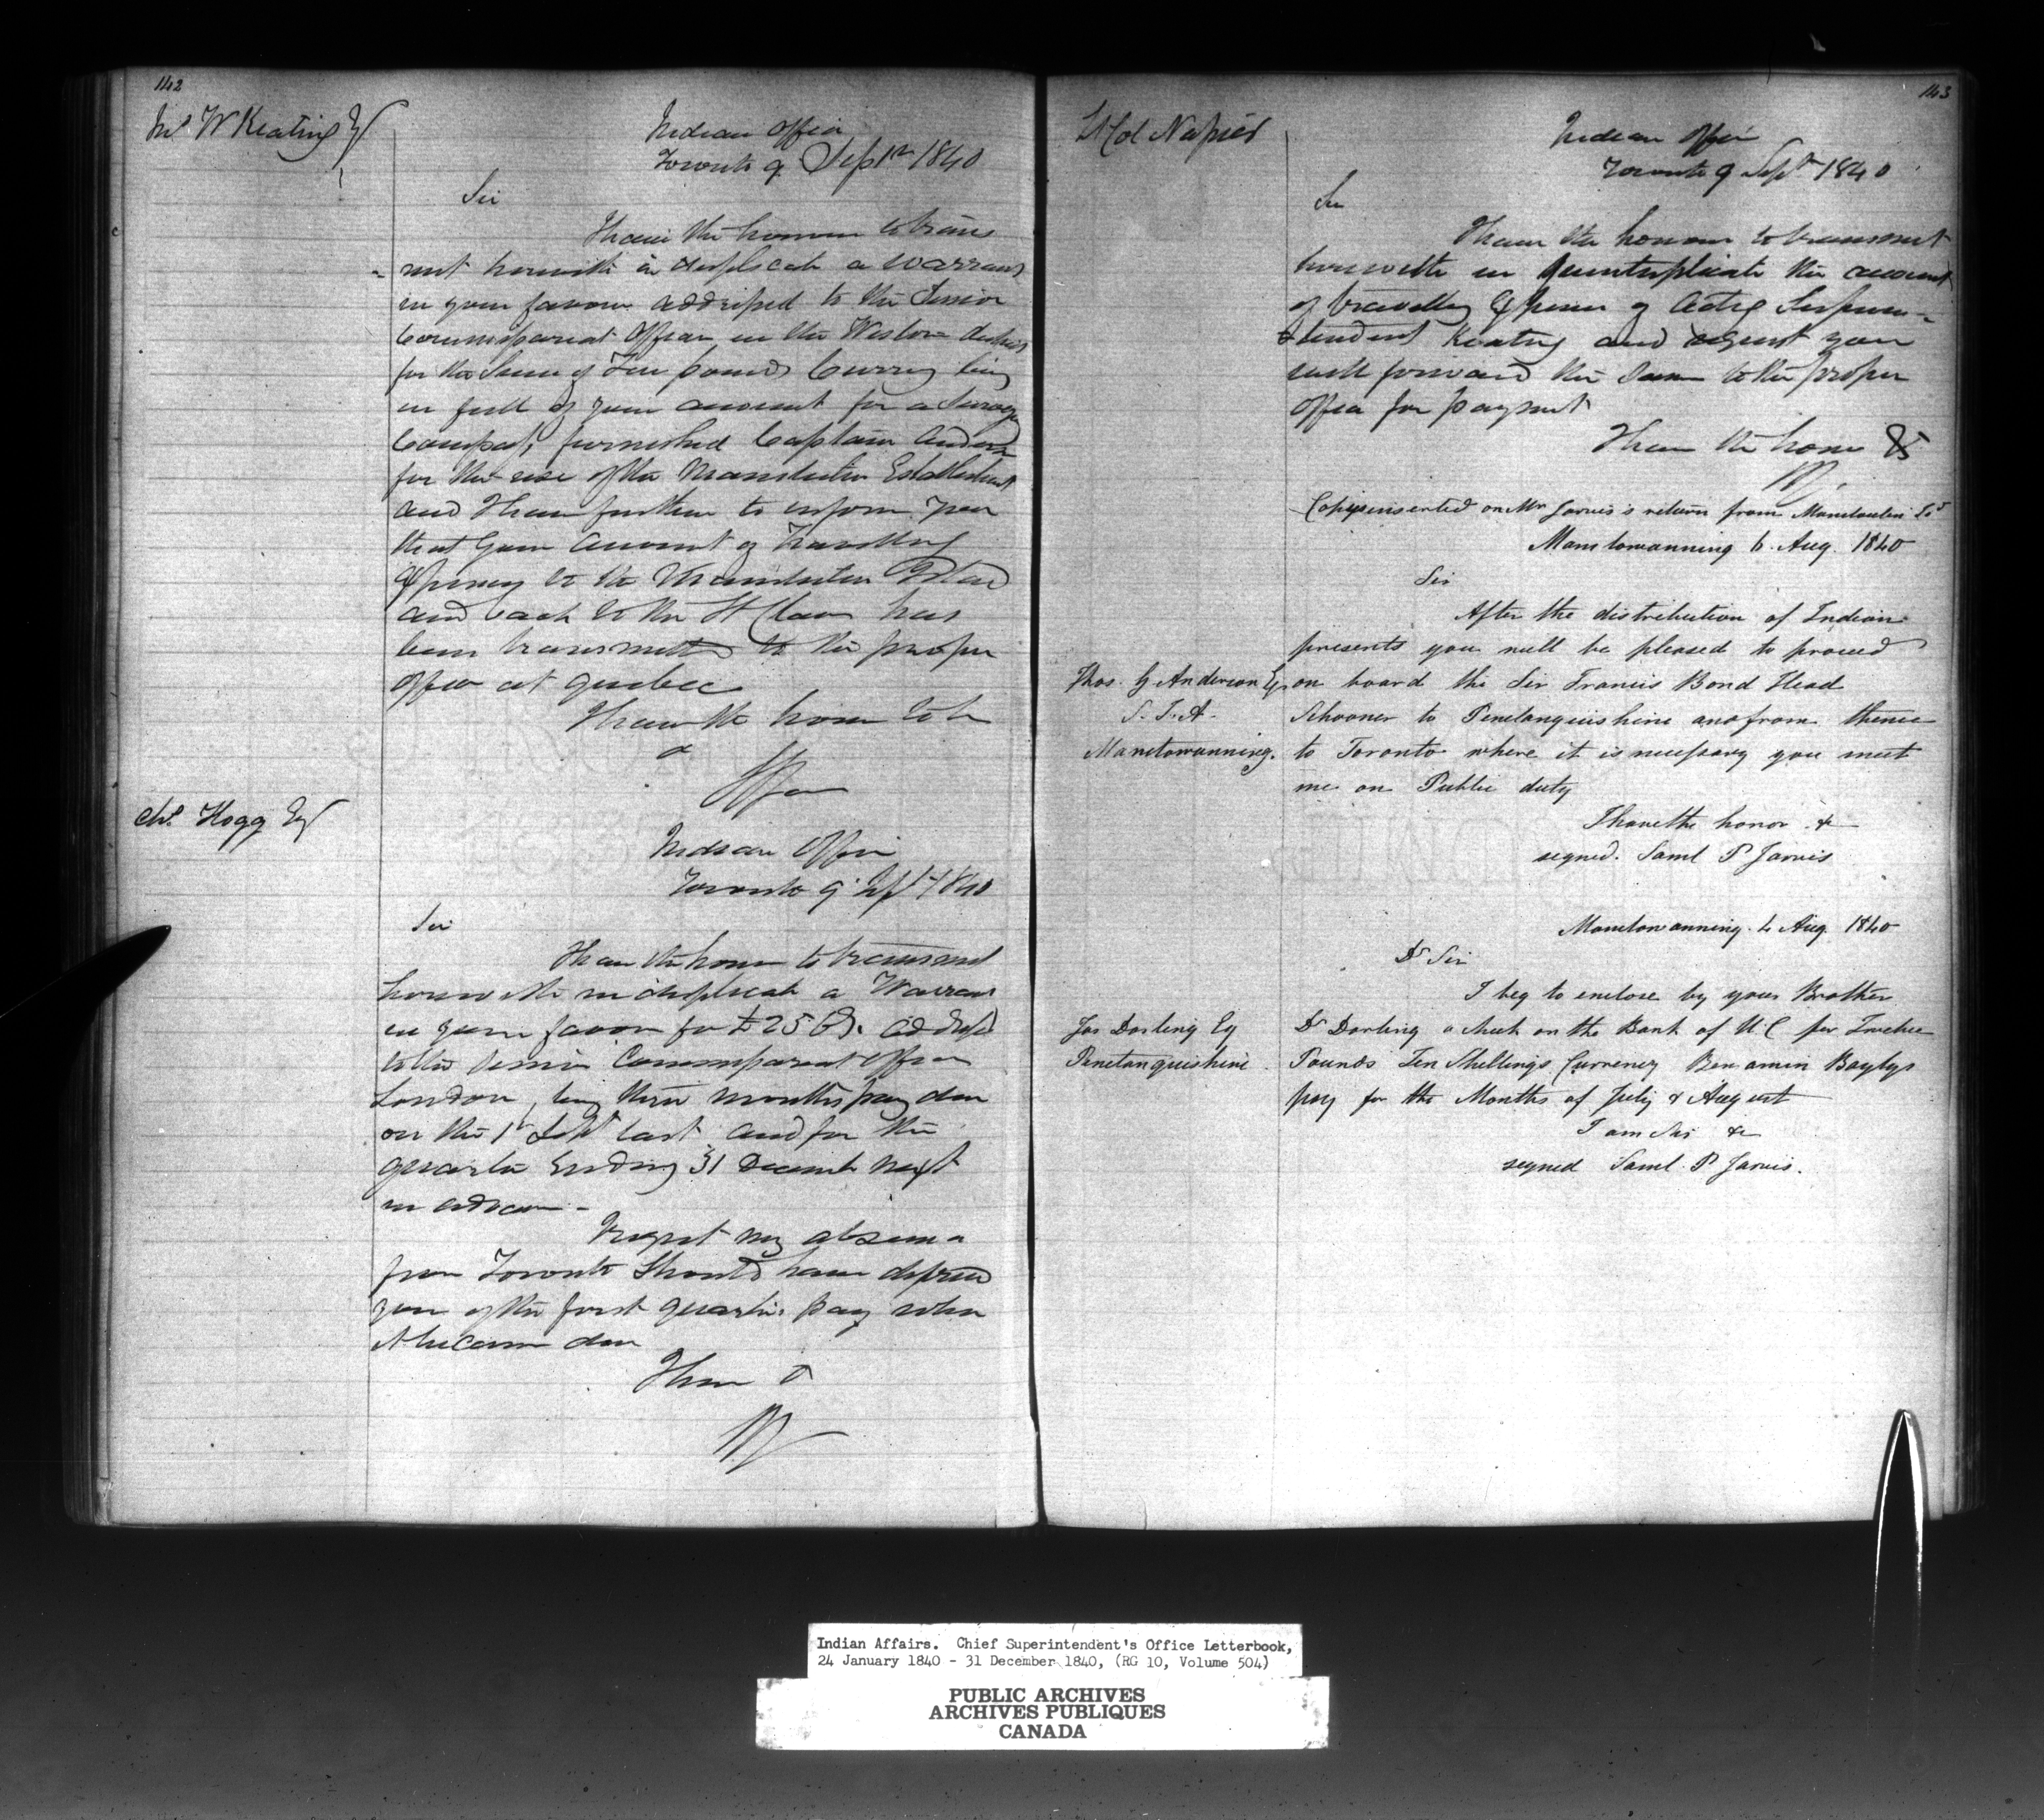 142
J. W Keating Esq
Indian Office
Toronto 9 Septr 1840
Sir
I have the honour to trans
- mit herewith in duplicate a Warrant
in your favour addressed to the Senior
Commissariat Officer in the Western district
for the Sum of Ten pounds Currcy being
in full of your account for a Surveyg
Compass, furnished Captain Anderson
for the use of the Manitoulin Establishment
and I have further to inform you
that your Account of Travelling
Expenses to the Manitoulin Island
and back to the St Clair has
been transmitted to the proper
office at Quebec
I have the honor to be
Chs. Hogg Esq
Indian Office
Toronto 9 Sept 1840
Sir
I have the honor to transmit
herewith in duplicate a Warrant
in your favor for £25 addressed
to the Senior Commissariat Officer
London, being three months pay due
on the 1st Sept last and for the
quarter Ending 31 December next
in advance -
I regret my absence
from Toronto should have deprived
you of the first quarters pay when
it became due
I have &
143
Lt Col Napier
Indian Office
Toronto 9 Septr 1840
Sir
I have the honour to transmit
herewith in Quintuplicate the account
of travelling Expenses of Actg Superin-
tendent Keating and request you
will forward the Same to the proper
office for payment
I have the honor &
Copies inserted on Mr Jarvis's return from Manitoulin Isd
Manitowanning 6. Aug. 1840
Sir
After the distribution of Indian
presents you will be pleased to proceed
Thos. G Anderson Esq on board the Sir Francis Bond Head
S. I. A. Schooner to Penetanguishine and from thence
Manitowanning. to Toronto where it is necessary you meet
me on Public duty
I have the honor &
signed. Saml P Jarvis
Manitowanning. 4 Aug. 1840
Dr Sir
I beg to enclose by your Brother
Jas Darling Esq Dr Darling a check on the Bank of U. C for Twelve
Penetanguishine. Pounds Ten Shillings Currency Benjamin Baylys
pay for the Months of July & August
I am Sir &
signed Saml. P Jarvis.
Indian Affairs. Chief Superintendent's Office Letterbook,
24 January 1840 - 31 December 1840, (RG 10, Volume 504)
PUBLIC ARCHIVES
ARCHIVES PUBLIQUES
CANADA